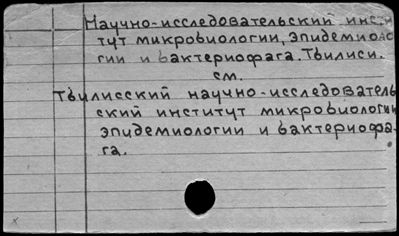 Научно-исследовательский инсти
тут микробиологии, эпидемиоло
гии и бактериофага. Тбилиси.
см.
Тбилисский научно-исследователь
ский институт микробиологии
эпидемиологии и бактериофа-
га.